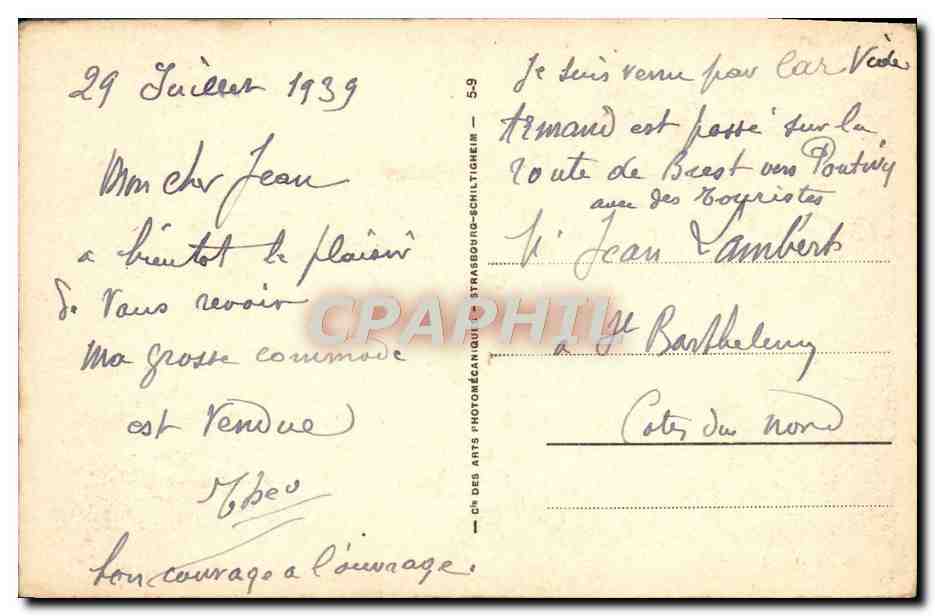 29 Juillet 1939
Mon cher Jean
a bientot le plaisir
de vous revoir
Ma grosse commode
est vendue
Theo
bon courage a l'ouvrage.
Cie DES ARTS PHOTOMÉCANIQUES - STRASBOURG-SCHILTIGHEIM - 5-9
Je suis venu par Car Vide
Armand est passé sur la
route de Brest vers Pontivy
avec des Touristes
Mr Jean Lambert
a St Barthelemy
Cotes du Nord
CPAPHIL